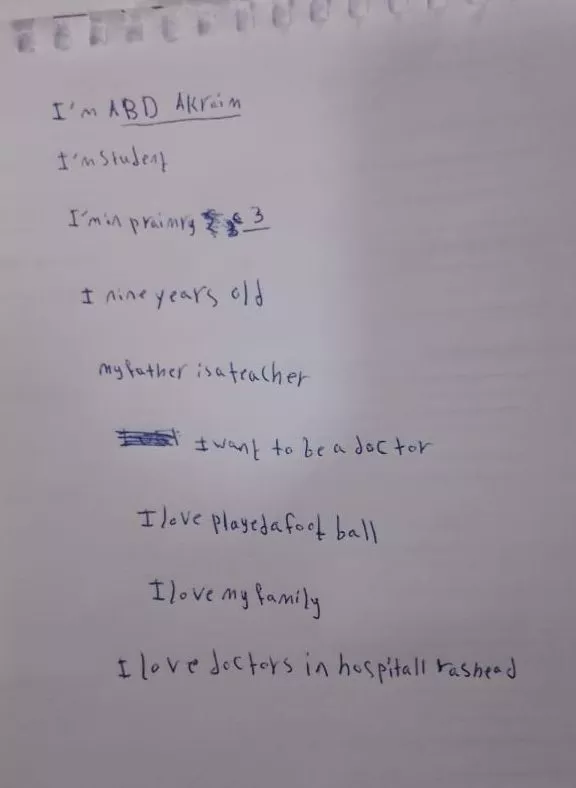 I'm ABD AKraim
I'm student
I'm in prainry 3
I nine years old
my father is a teacher
I want to be a doctor
I love played a foot ball
I love my family
I love doctors in hospitall rashead